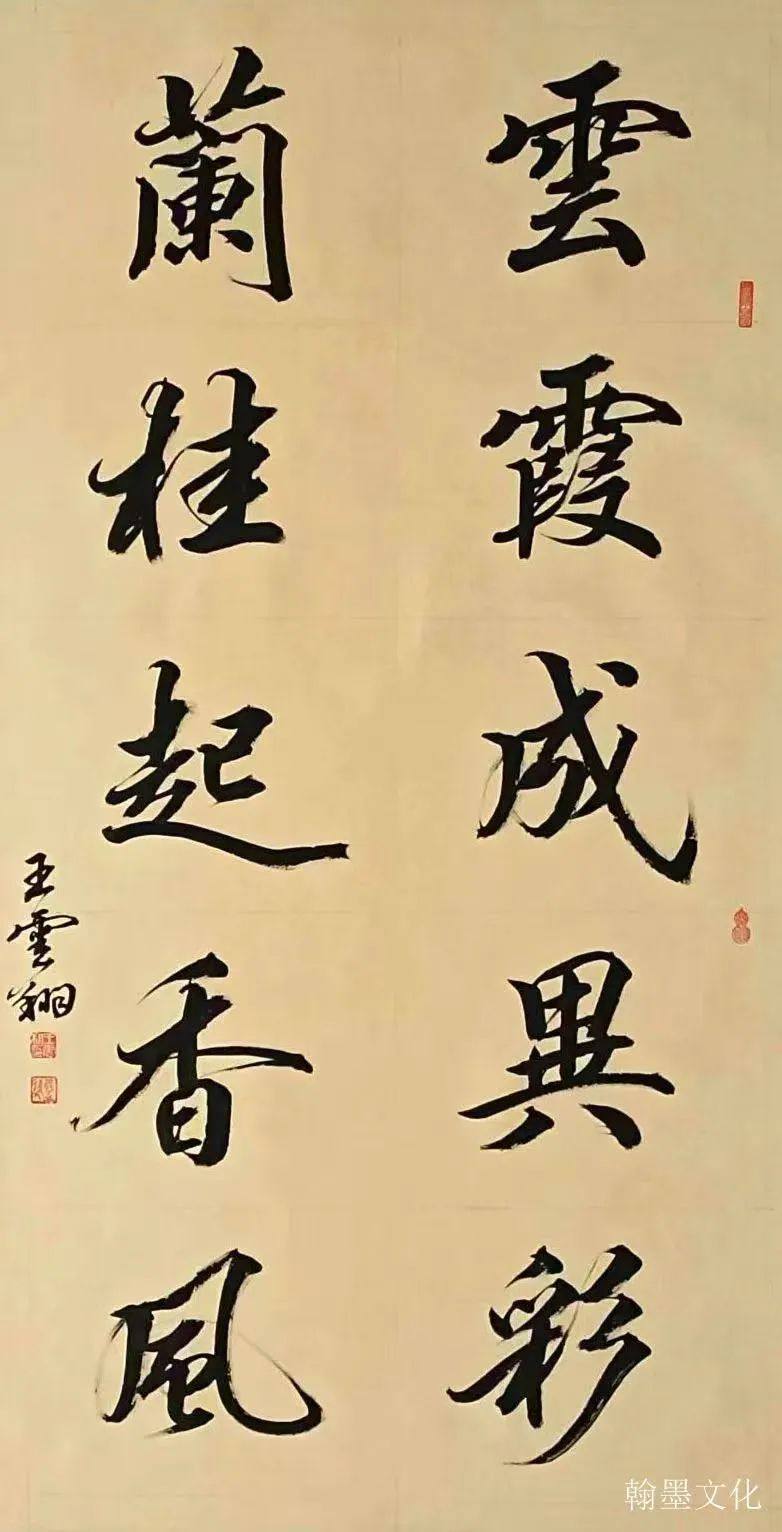 雲霞成異彩
蘭桂起香風
王雲翔
翰墨文化